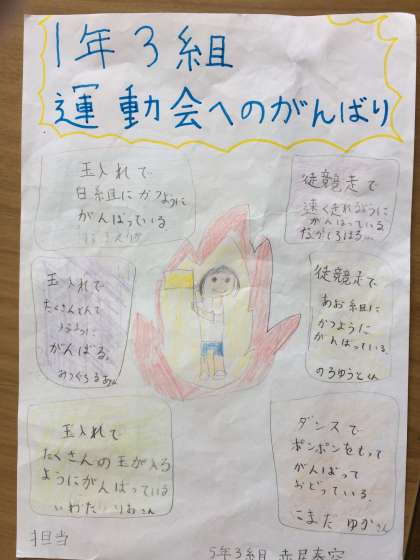 1年3組
運動会へのがんばり
玉入れで
白組にかつように
がんばっている
徒競走で
速く走れるように
がんばっている
玉入れで
たくさんとんで
がんばる。
徒競走で
あお組に
かつように
がんばっている。
のろゆうとくん
玉入れで
たくさんの玉が入る
ようにがんばっている
いわた りおさん
ダンスで
ポンポンをもって
がんばって
おどっている。
こまだ ゆかさん
担当
5年3組